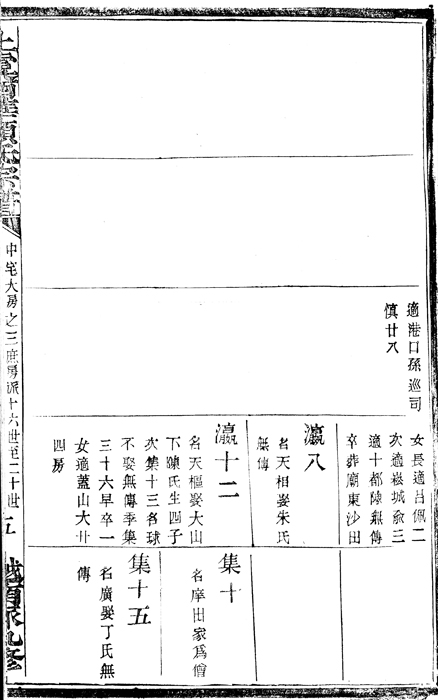 適港口孫巡司
慎廿八
女長適呂佩二
次適崧城俞三
適十都陸無傳
卒葬廟東沙田
瀛八
名天相娶朱氏
無傳
瀛十二
名天樞娶大山
下陳氏生四子
次集十三名球
不娶無傳季集
三十六早卒一
女適蓋山大廿
四房
集十
名庠出家爲僧
集十五
名廣娶丁氏無
傳
中宅大房之三庶房派十六世至二十世
五